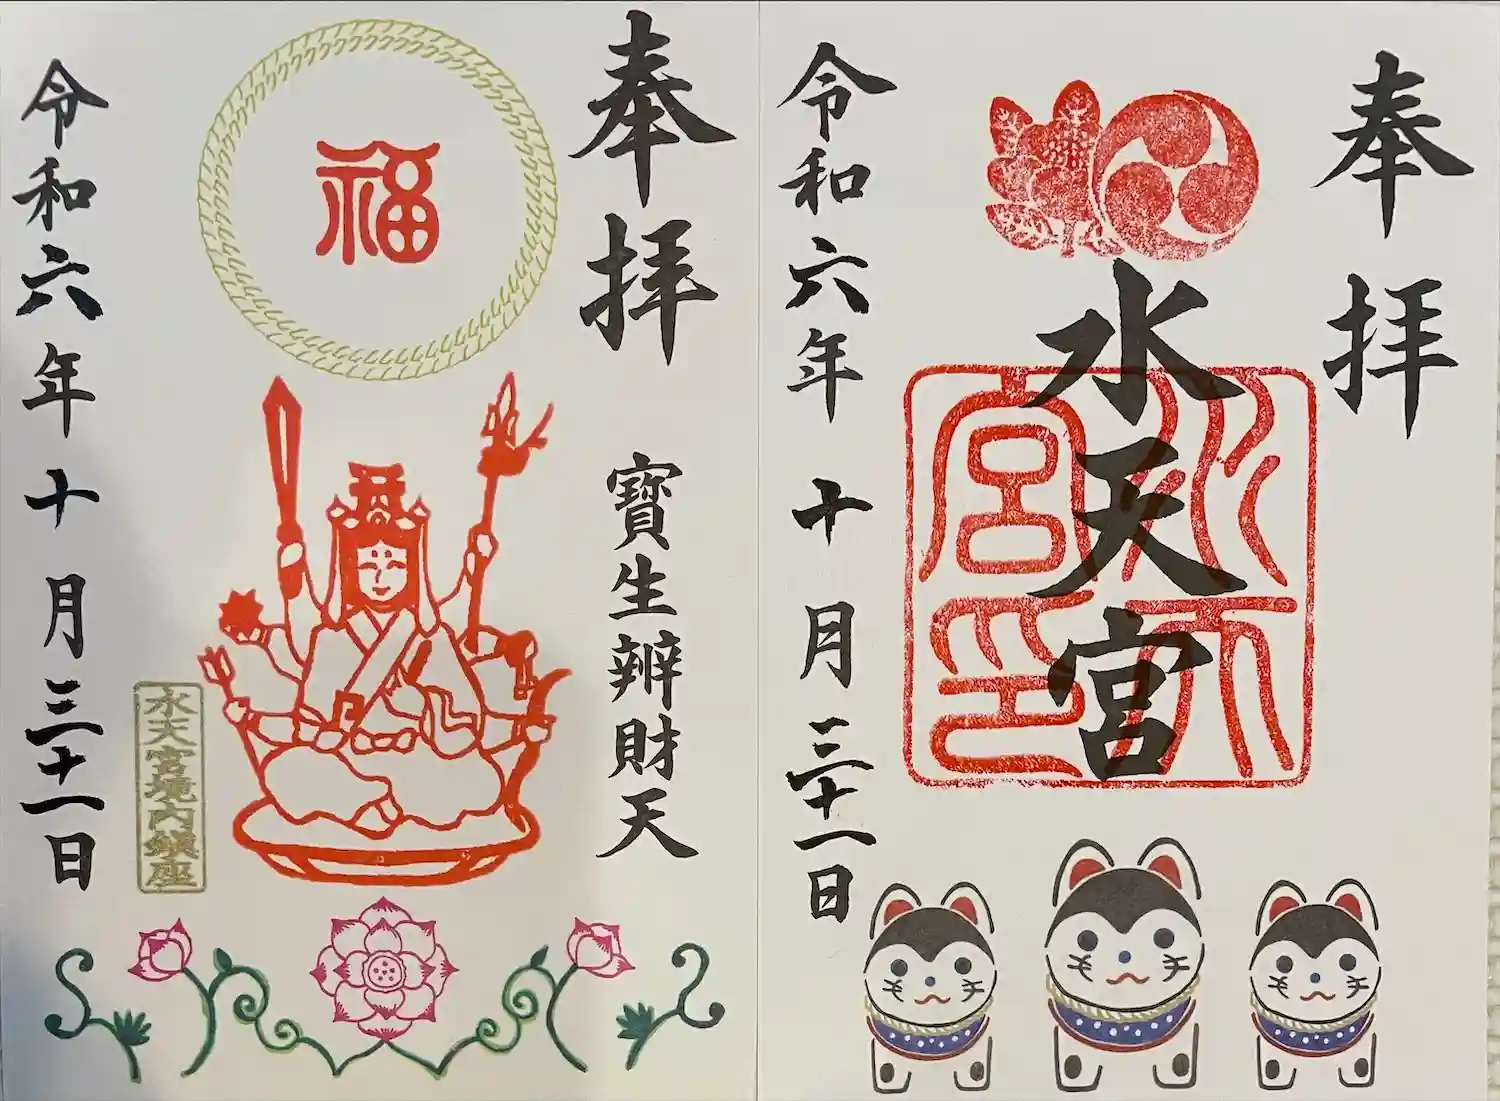 奉拝
水天宮
水天宮印
令和六年 十月三十一日
奉拝
寶生辨財天
福
水天宮境内鎮座
令和六年 十月三十一日